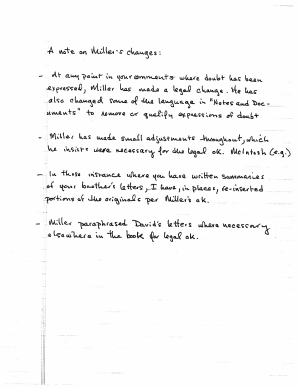 A note on Miller's changes:
- At any point in your comments where doubt has been
expressed, Miller has made a legal change. He has
also changed some of the language in "Notes and Doc-
uments" to remove or qualify expressions of doubt
- Miller has made small adjustments throughout, which
he insists were necessary for the legal ok. McIntosh (e.g.)
- In those instance where you have written summaries
of your brother's letters, I have, in places, re-inserted
portions of the originals per Miller's ok.
- Miller paraphrased David's letters where necessary
elsewhere in the book for legal ok.